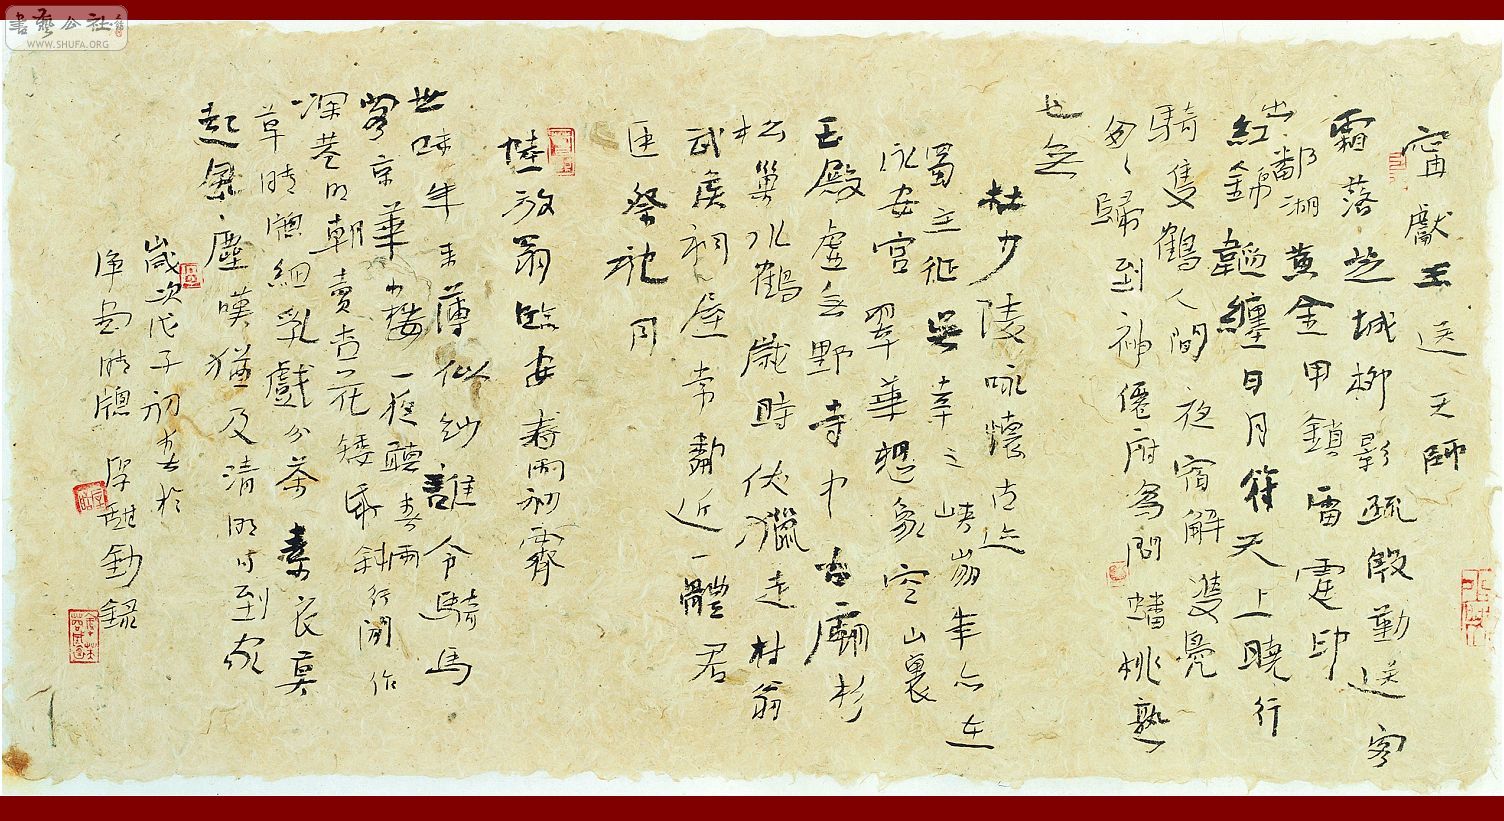 書藝公社
WWW.SHUFA.ORG
甯獻王送天師
霜落芝城柳影疏殷勤送客
出鄱湖黃金甲鎖雷霆印
紅錦韜纏日月符天上曉行
騎隻鶴人間夜宿解雙鳧
匆〻歸到神僊府為問蟠桃熟
也無
杜少陵咏懷古迹
蜀主征吳幸三峽崩年亦在
永安宮翠華想象空山裏
玉殿虛無野寺中古廟杉
松巢水鶴歲時伏獵走村翁
武侯祠屋常鄰近一體君
臣祭祀同
陸放翁臨安春雨初霽
世味年來薄似紗誰令騎馬
客京華小樓一夜聽春雨
深巷明朝賣杏花矮紙斜行閑作
草晴牕細乳戲分茶素衣莫
起風塵嘆猶及清明可到家
歲次戊子初春於
晴牕段